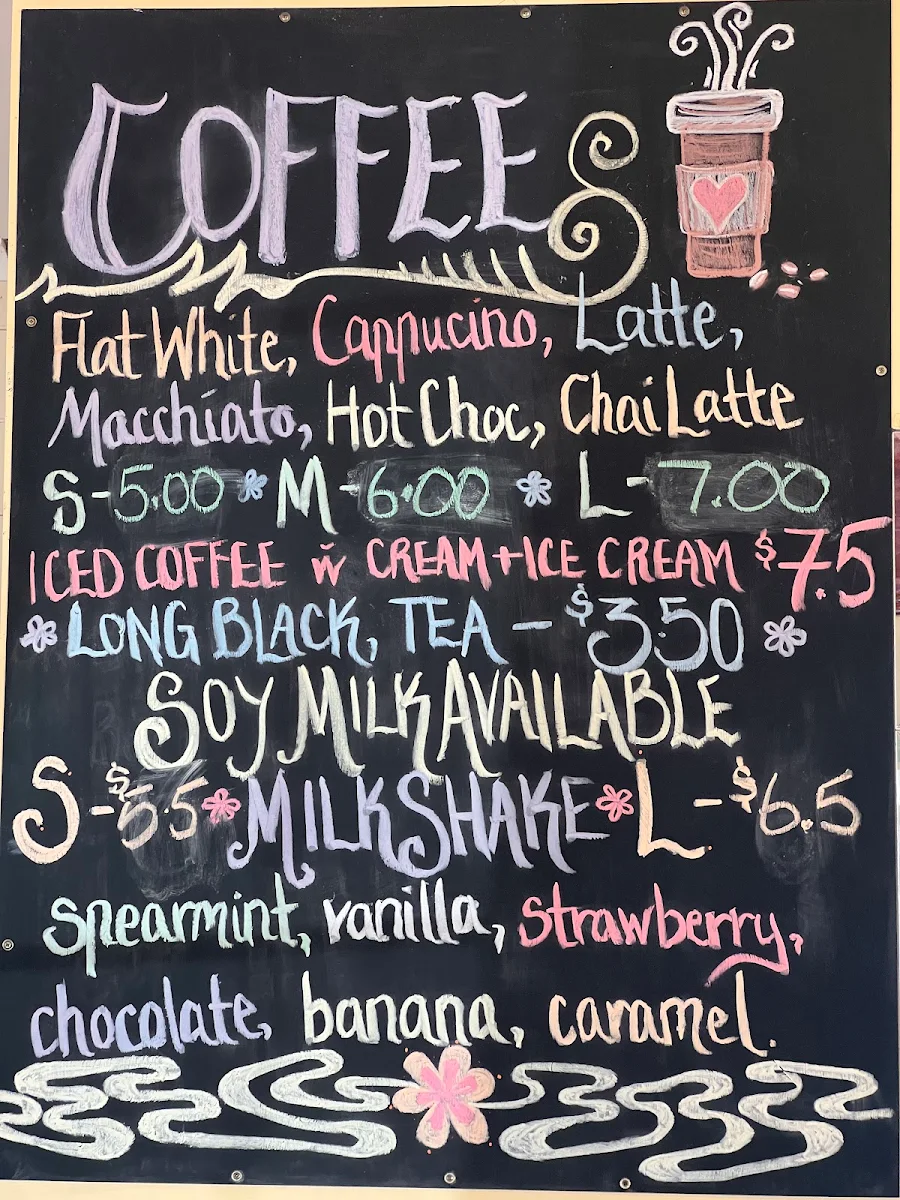 COFFEE
Flat White, Cappucino, Latte,
Macchiato, Hot Choc, Chai Latte
S-5.00 M-6.00 L-7.00
ICED COFFEE w CREAM+ICE CREAM $7.5
LONG BLACK, TEA - $3.50
SOY MILK AVAILABLE
S-$5.5 MILKSHAKE L-$6.5
spearmint, vanilla, strawberry,
chocolate, banana, caramel.